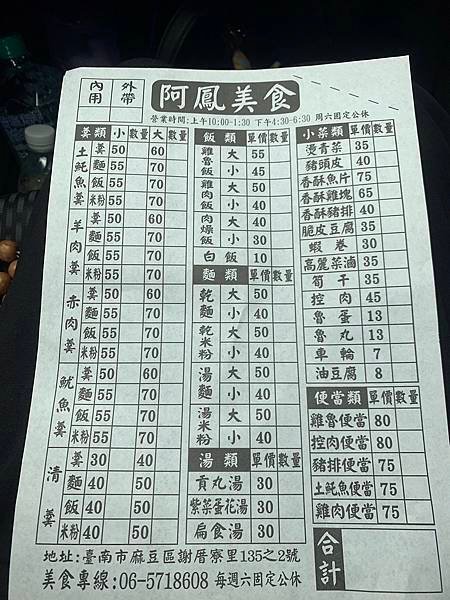 內用 外帶
阿鳳美食
營業時間:上午10:00-1:30 下午4:30-6:30 周六固定公休
羹類 小 數量 大 數量
土魠魚羹
羹 50 60
麵 55 70
飯 55 70
米粉 55 70
羊肉羹
羹 50 60
麵 55 70
飯 55 70
米粉 55 70
赤肉羹
羹 50 60
麵 55 70
飯 55 70
米粉 55 70
魷魚羹
羹 50 60
麵 55 70
飯 55 70
米粉 55 70
清羹
羹 30 40
麵 40 50
飯 40 50
米粉 40 50
飯類 單價 數量
雞魯飯 大 55
小 45
雞肉飯 大 50
小 40
肉燥飯 大 40
小 30
白飯 10
麵類 單價 數量
乾麵 大 50
小 40
乾米粉 大 50
小 40
湯麵 大 50
小 40
湯米粉 大 50
小 40
湯類 單價 數量
貢丸湯 30
紫菜蛋花湯 30
扁食湯 30
小菜類 單價 數量
燙青菜 35
豬頭皮 40
香酥魚片 75
香酥雞塊 65
香酥豬排 40
脆皮豆腐 35
蝦卷 30
高麗菜滷 35
筍干 35
控肉 45
魯蛋 13
魯丸 13
車輪 7
油豆腐 8
便當類 單價 數量
雞魯便當 80
控肉便當 80
豬排便當 75
土魠魚便當 75
雞肉便當 75
合計
地址:臺南市麻豆區謝厝寮里135之2號
美食專線:06-5718608 每週六固定公休